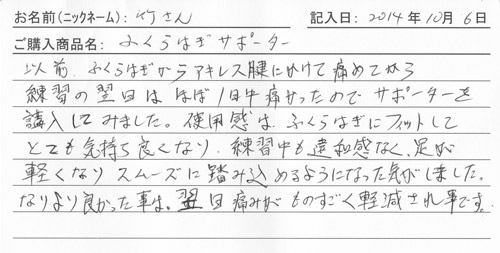 お名前(ニックネーム): 竹さん 記入日: 2014年10月6日
ご購入商品名: ふくらはぎサポーター
以前、ふくらはぎからアキレス腱にかけて痛めてから
練習の翌日はほぼ1日中痛かったのでサポーターを
購入してみました。使用感は、ふくらはぎにフィットして
とても気持ち良くなり、練習中も違和感なく、足が
軽くなりスムーズに踏み込めるようになった気がしました。
なにより良かった事は、翌日痛みがものすごく軽減され事です。